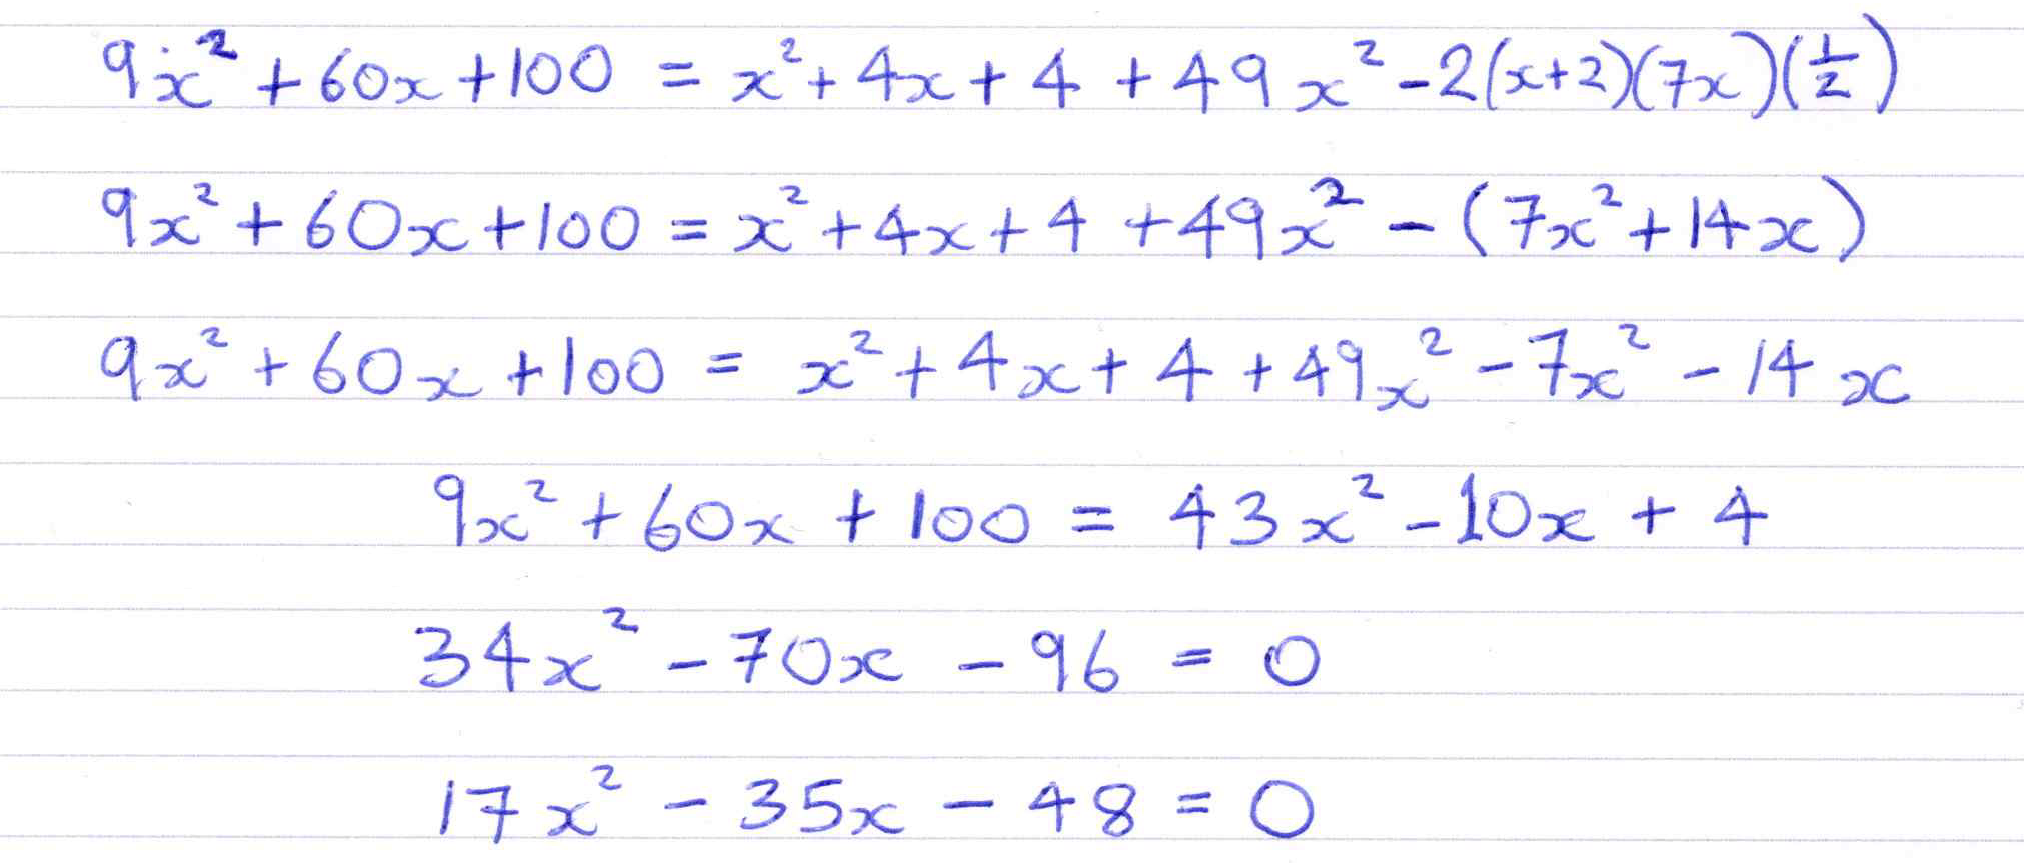 9x² + 60x + 100 = x² + 4x + 4 + 49x² - 2(x+2)(7x)(½)
9x² + 60x + 100 = x² + 4x + 4 + 49x² - (7x² + 14x)
9x² + 60x + 100 = x² + 4x + 4 + 49x² - 7x² - 14x
9x² + 60x + 100 = 43x² - 10x + 4
34x² - 70x - 96 = 0
17x² - 35x - 48 = 0